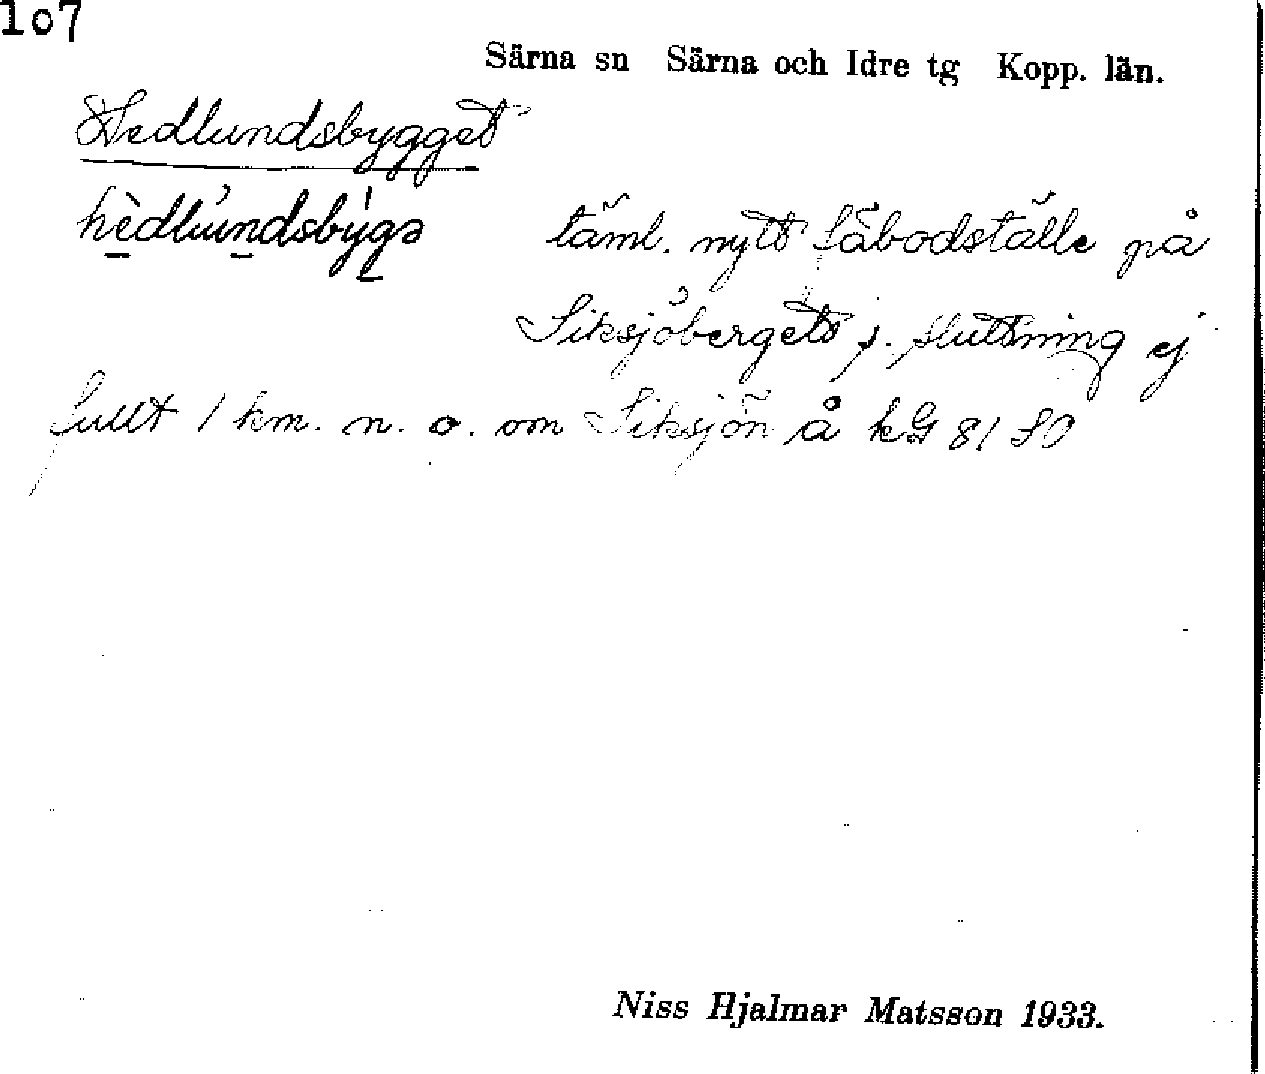 107
Särna sn Särna och Idre tg Kopp. län.
Hedlundsbygget
hèdlundsbýgə täml. nytt fäbodställe på
Siksjöbergets s. sluttning ej
fullt 1 km. n. o. om Siksjön å kG 81 80
Niss Hjalmar Matsson 1933.